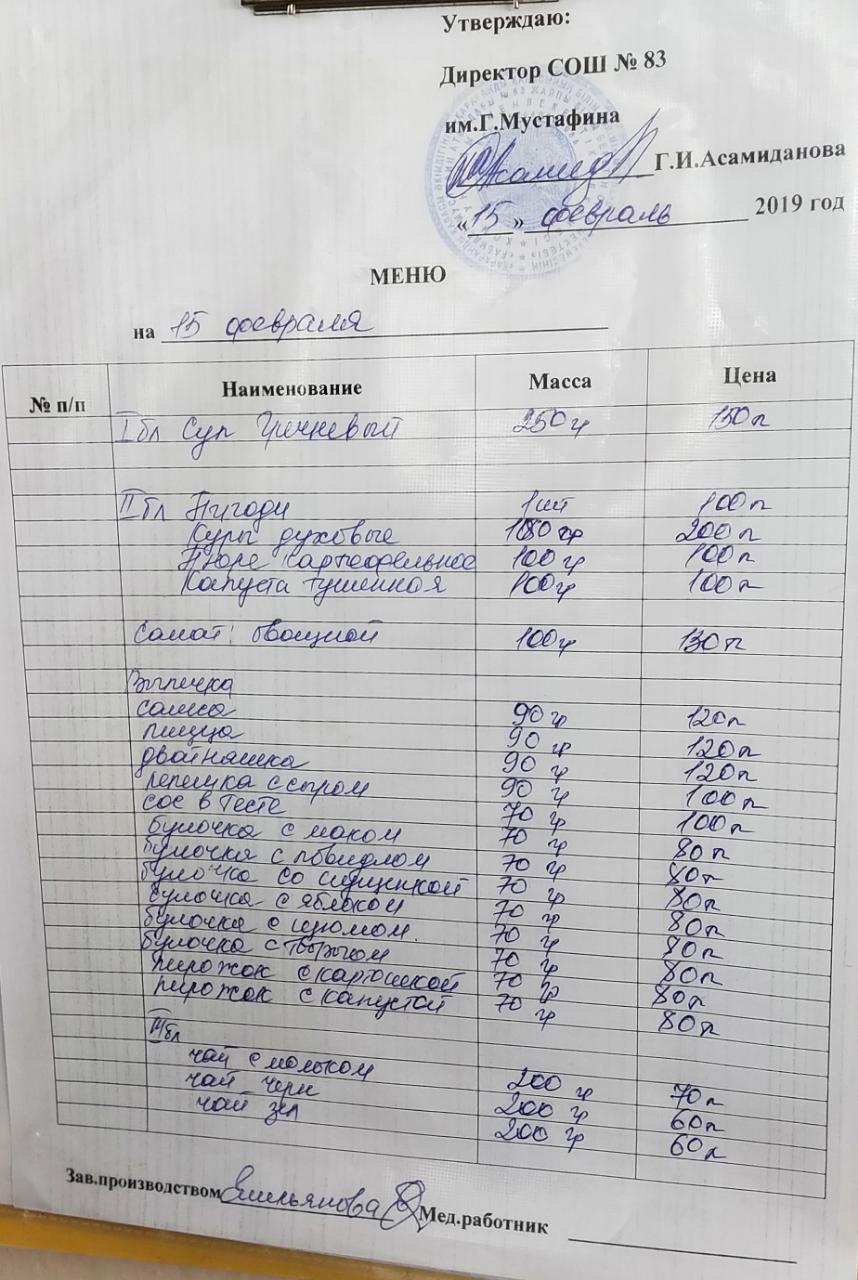 Утверждаю:
Директор СОШ № 83
им.Г.Мустафина
Г.И.Асамиданова
«15» февраль 2019 год
МЕНЮ
на 15 февраля
№ п/п Наименование Масса Цена
I бл Суп Гречневый 250 гр 150 п
II бл Пигоди 1 шт 100 п
Куры духовые 180 гр 200 п
Пюре картофельное 100 гр 100 п
Капуста тушенная 100 гр 100 п
Салат: Овощной 100 гр 130 п
Выпечка
самса 90 гр 120 п
пицца 90 гр 120 п
двайняшка 90 гр 120 п
лепешка с сыром 90 гр 100 п
сос в тесте 70 гр 100 п
булочка с маком 70 гр 80 п
булочка с повидлом 70 гр 80 п
булочка со сгущенкой 70 гр 80 п
булочка с яблоком 70 гр 80 п
булочка с изюмом. 70 гр 80 п
булочка с творогом 70 гр 80 п
пирожок с картошкой 70 гр 80 п
пирожок с капустой 70 гр 80 п
III бл
чай с молоком 200 гр 70 п
чай черн 200 гр 60 п
чай зел 200 гр 60 п
Зав.производством Емельянова Мед.работник